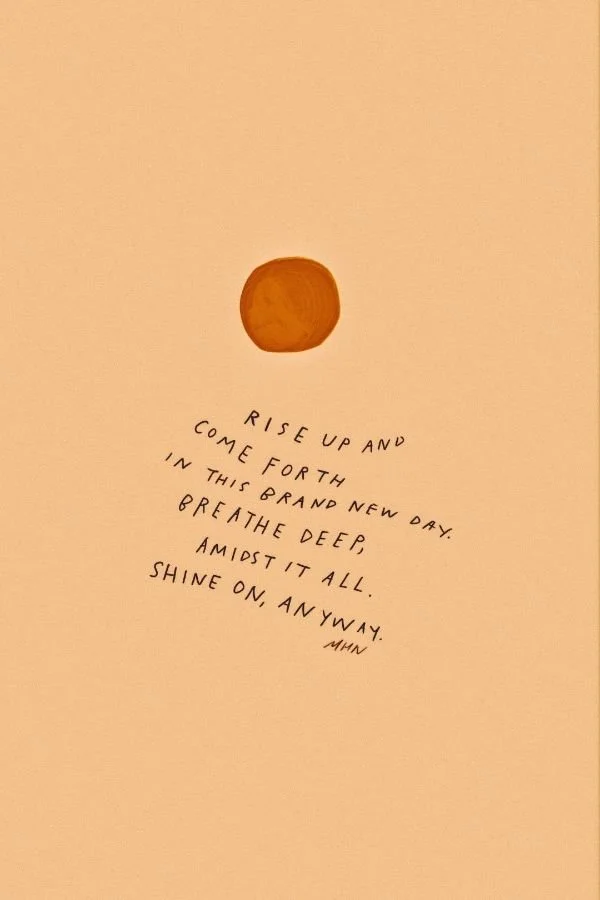 RISE UP AND
COME FORTH
IN THIS BRAND NEW DAY.
BREATHE DEEP,
AMIDST IT ALL.
SHINE ON, ANYWAY.
MHN